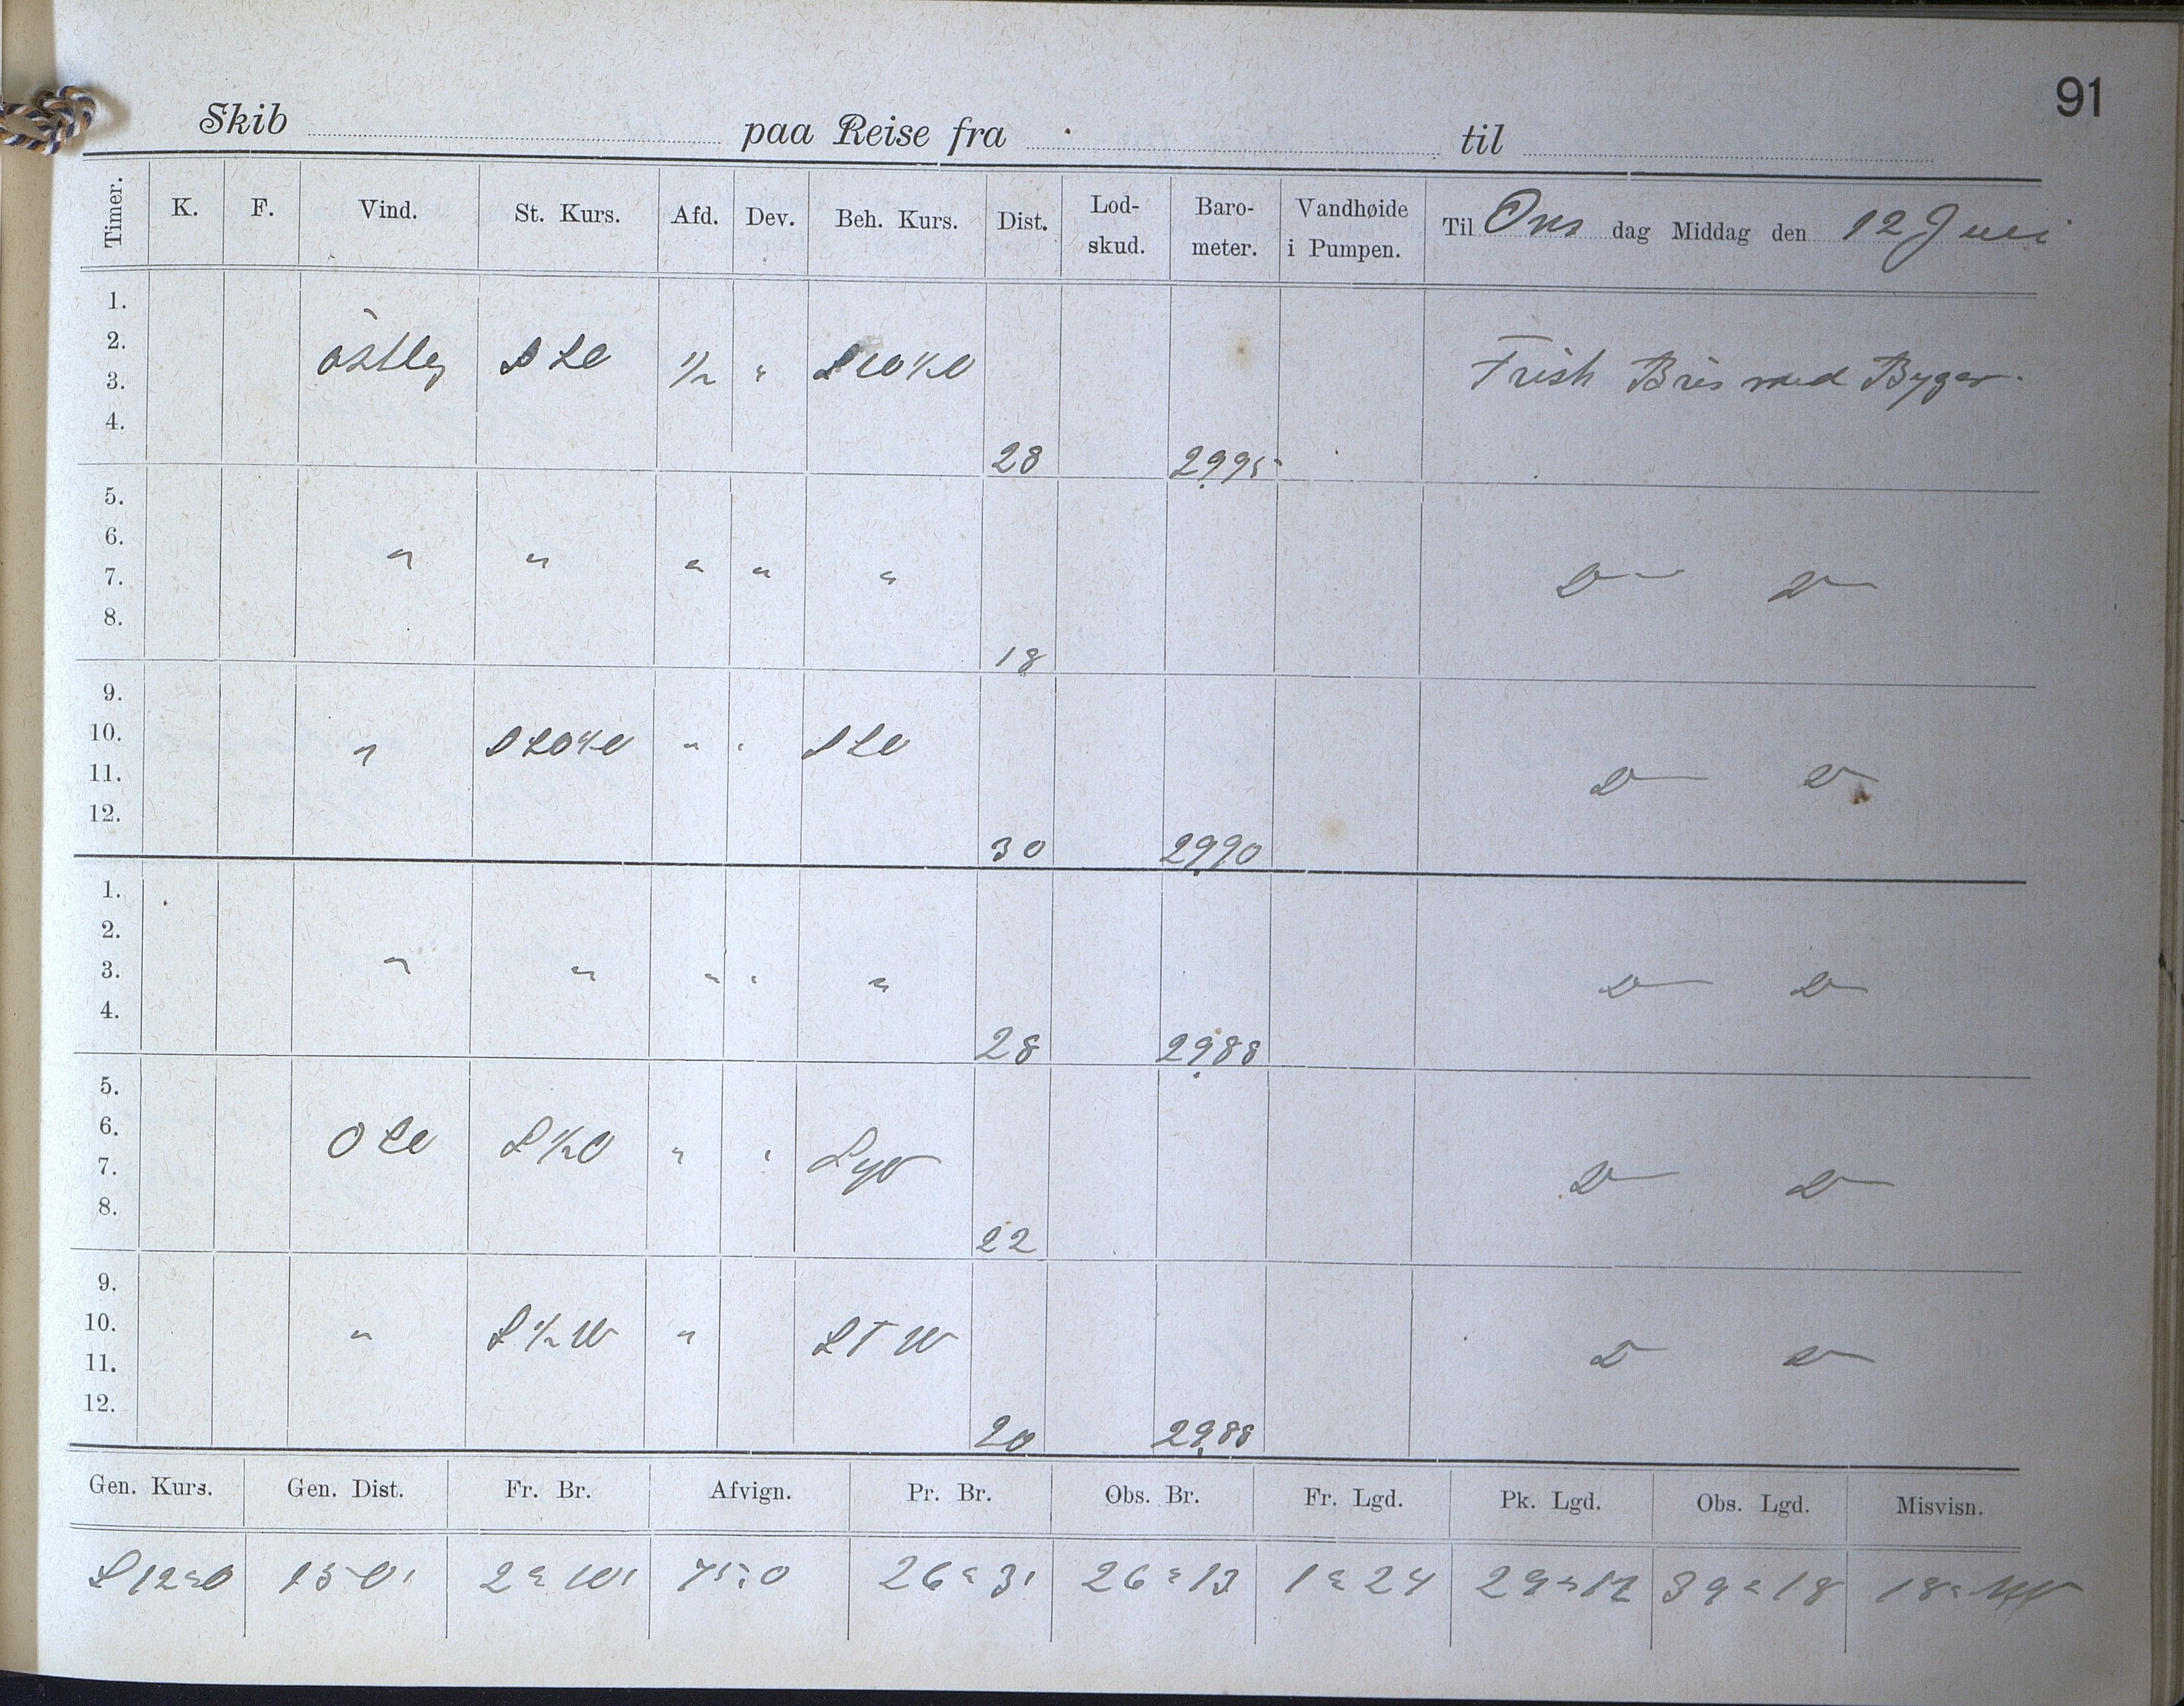 91
Skib paa Reise fra til
Timer. K. F. Vind. St. Kurs. Afd. Dev. Beh. Kurs. Dist. Lod-skud. Baro-meter. Vandhøide i Pumpen. Til Ons dag Middag den 12 Juni
1.
2. östlig 1/2 " Frisk Bris med Byger.
3.
4. 28 29,95
5.
6. " " " " " D D
7.
8. 18
9.
10. " " " D D
11.
12. 30 29,90
1.
2.
3. " " " " " D D
4. 28 29,88
5.
6. S 1/2 O " " Syd D D
7.
8. 22
9.
10. " S 1/2 W " S T W D D
11.
12. 20 29,88
Gen. Kurs. Gen. Dist. Fr. Br. Afvign. Pr. Br. Obs. Br. Fr. Lgd. Pk. Lgd. Obs. Lgd. Misvisn.
S 12° O 150' 2° 10' 26° 3' 26° 13 1° 24 39° 18